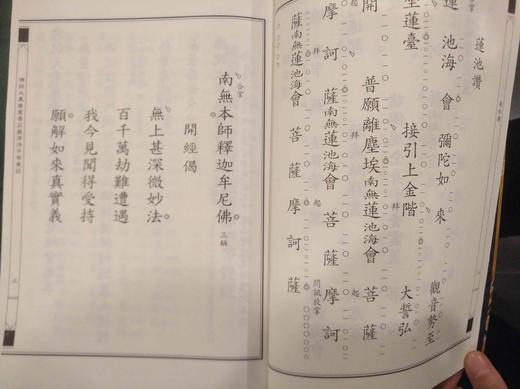 蓮池讚
蓮池海會 彌陀如來
觀音勢至
坐蓮臺 接引上金階
大誓弘
開 普願離塵埃 南無蓮池海會 菩薩
摩訶薩 南無蓮池海會 菩薩摩訶
薩 南無蓮池海會 菩薩摩訶薩
問訊放掌
合掌
南無本師釋迦牟尼佛 三稱
開經偈
無上甚深微妙法
百千萬劫難遭遇
我今見聞得受持
願解如來真實義